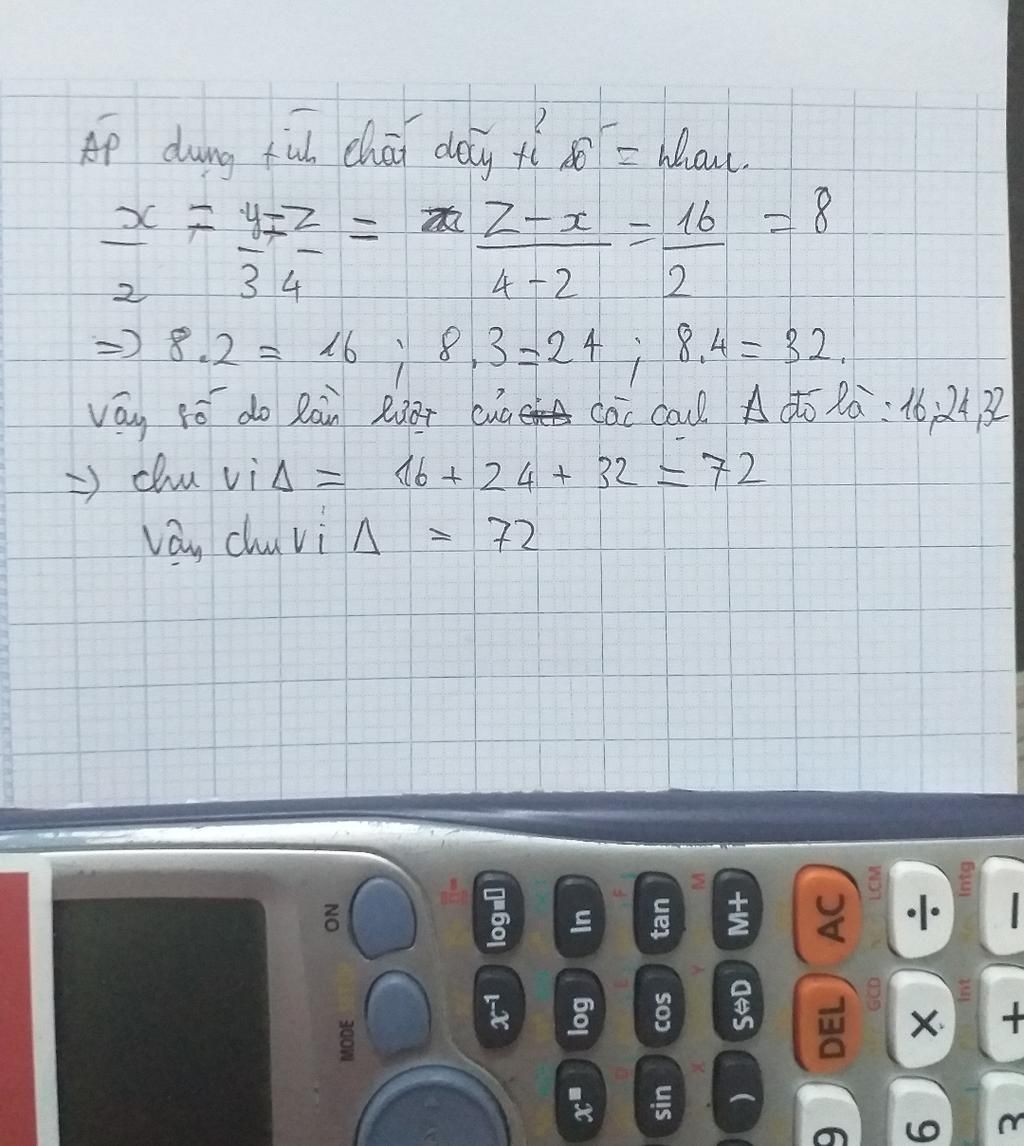 Áp dụng tính chất dãy tỉ số = nhau.
x/2 = y/3 = z/4 = z - x / 4 - 2 = 16/2 = 8
=> 8.2 = 16 ; 8.3 = 24 ; 8.4 = 32.
Vậy số đo lần lượt của các cạnh Δ đó là : 16; 24, 32
=> chu vi Δ = 16 + 24 + 32 = 72
Vậy chu vi Δ = 72
ON
MODE
log
ln
tan
M+
AC
LCM
÷
Intg
−
x⁻¹
log
cos
S⇔D
DEL
GCD
×
Int
+
x■
sin
)
9
6
3
M
F
E
Y
D
X